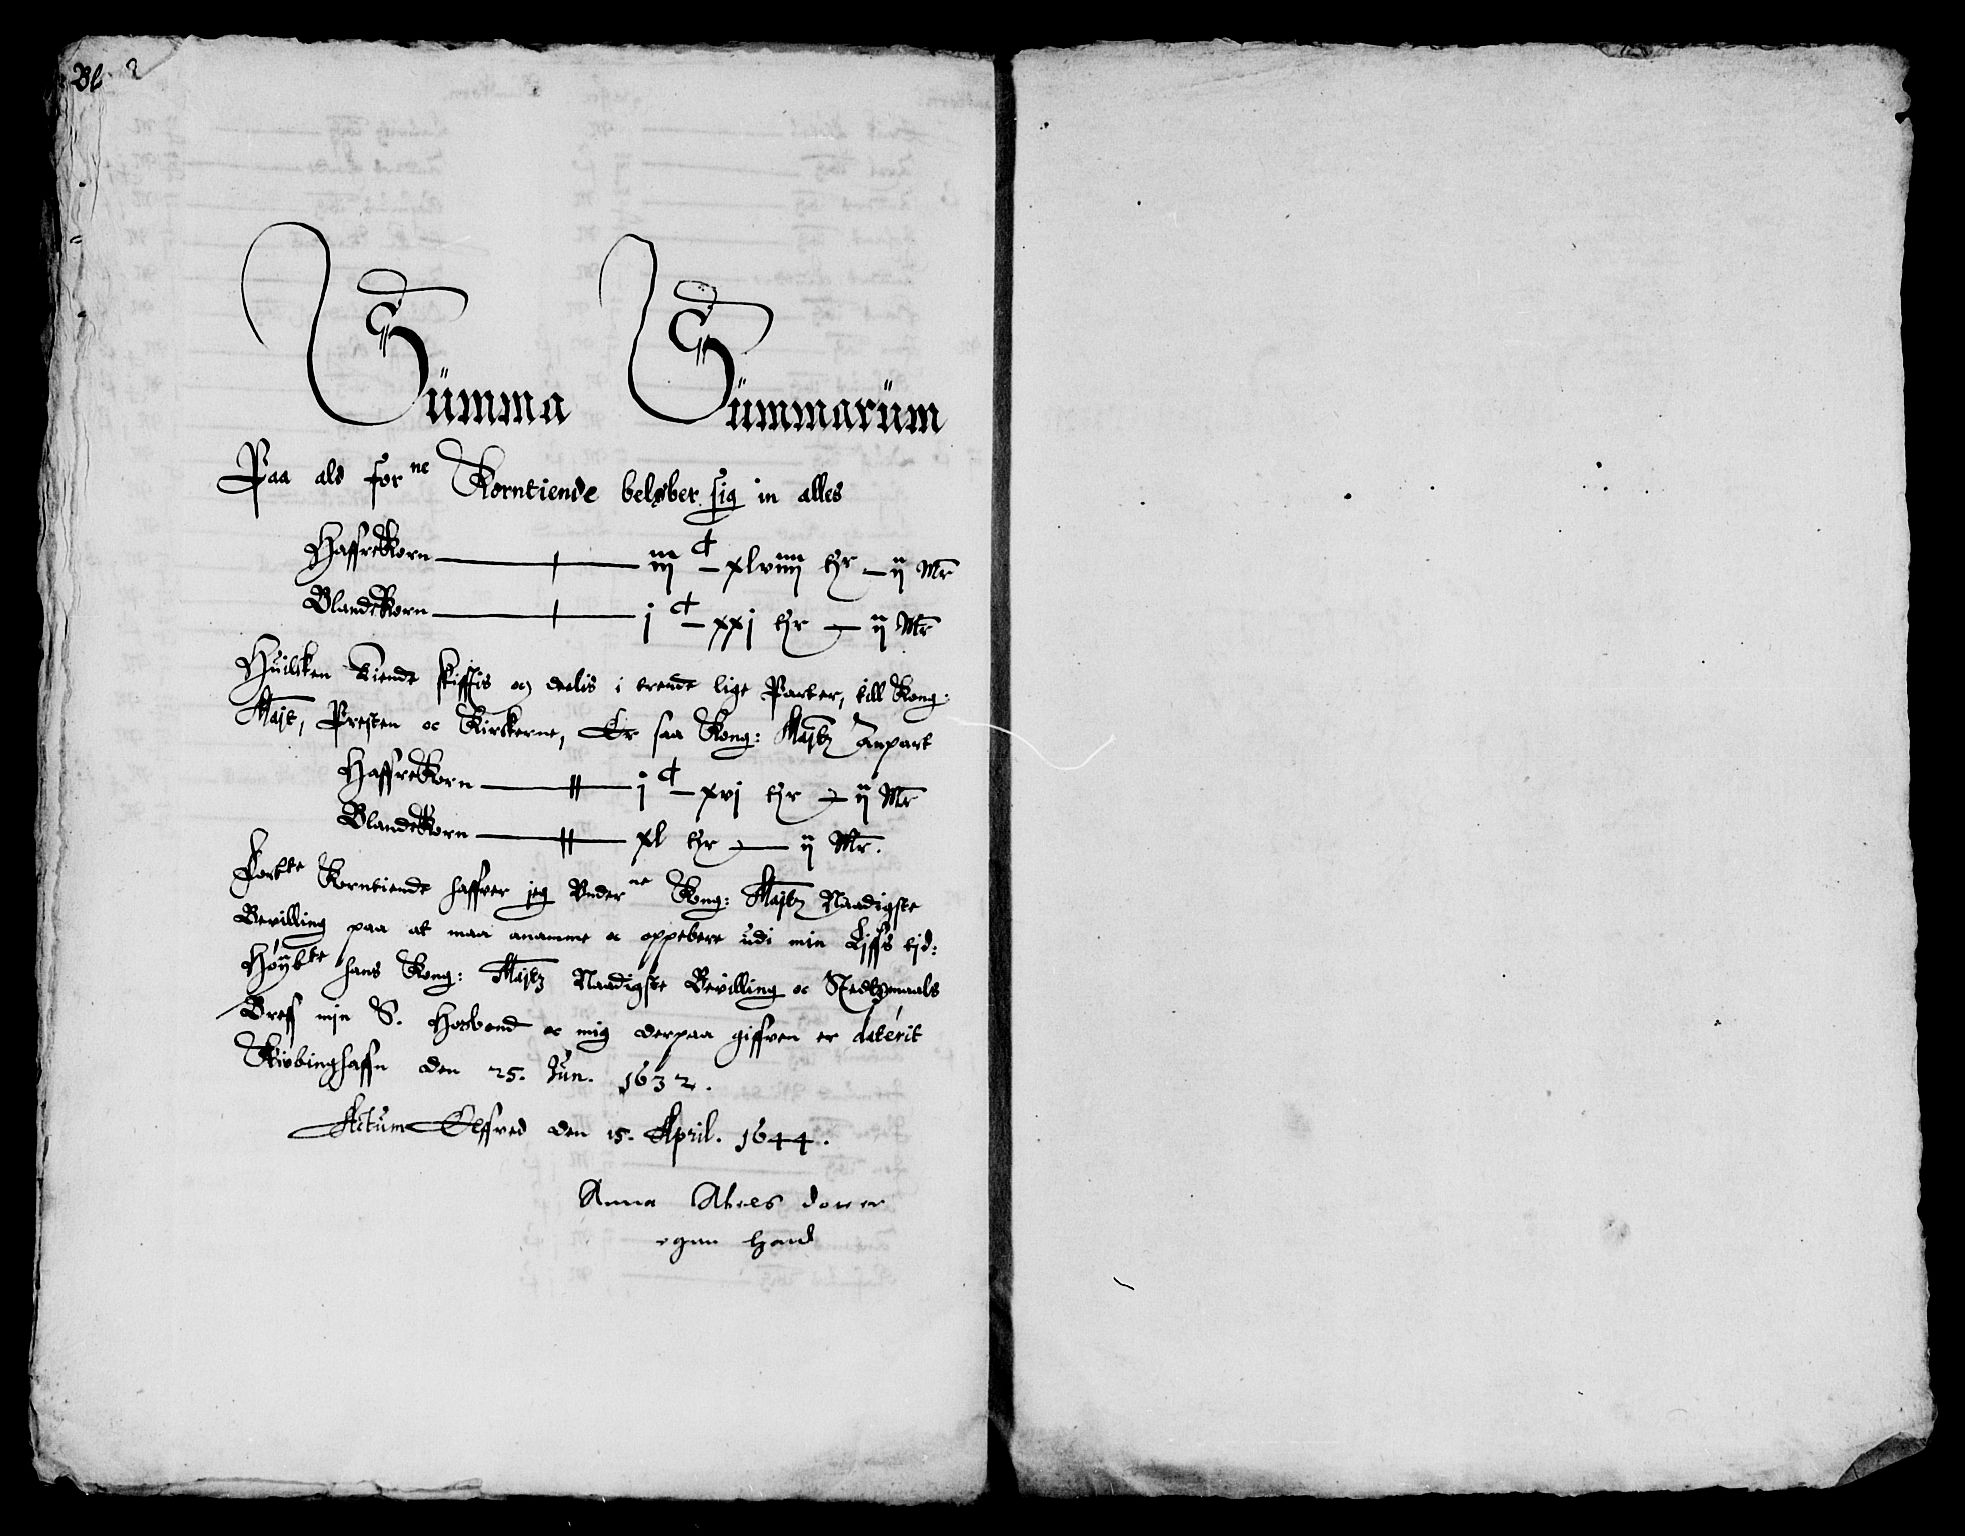 Summa Summarüm
Paa ald forne Korntiende beløber sig in alles
Haffrekorn — iij C xlviiij tr — ij Mr
Blandekorn — j C xxj tr — ij Mr
Huilcken tiende skifftis og deelis i trende lige Parter, till Kong:
Majt, Presten oc Kirckerne, Er saa Kong: Majtz anpart
Haffrekorn — j C xvj tr — ij Mr
Blandekorn — xl tr — ij Mr.
Forbte Korntiende haffver jeg Vnder Kong: Majtz Naadigste
Bevilling paa at maa anamme oc oppebere udi min Liffs tid:
Høÿbte hans Kong: Majtz Naadigste Bevilling oc Stedtzmaals
Breff min S. Hosbond oc mig derpaa giffven er daterit
Kiøbinghaffn den 25. Jun. 1632.
Actum Elffved den 15. April. 1644.
Anna dotter
egen hand